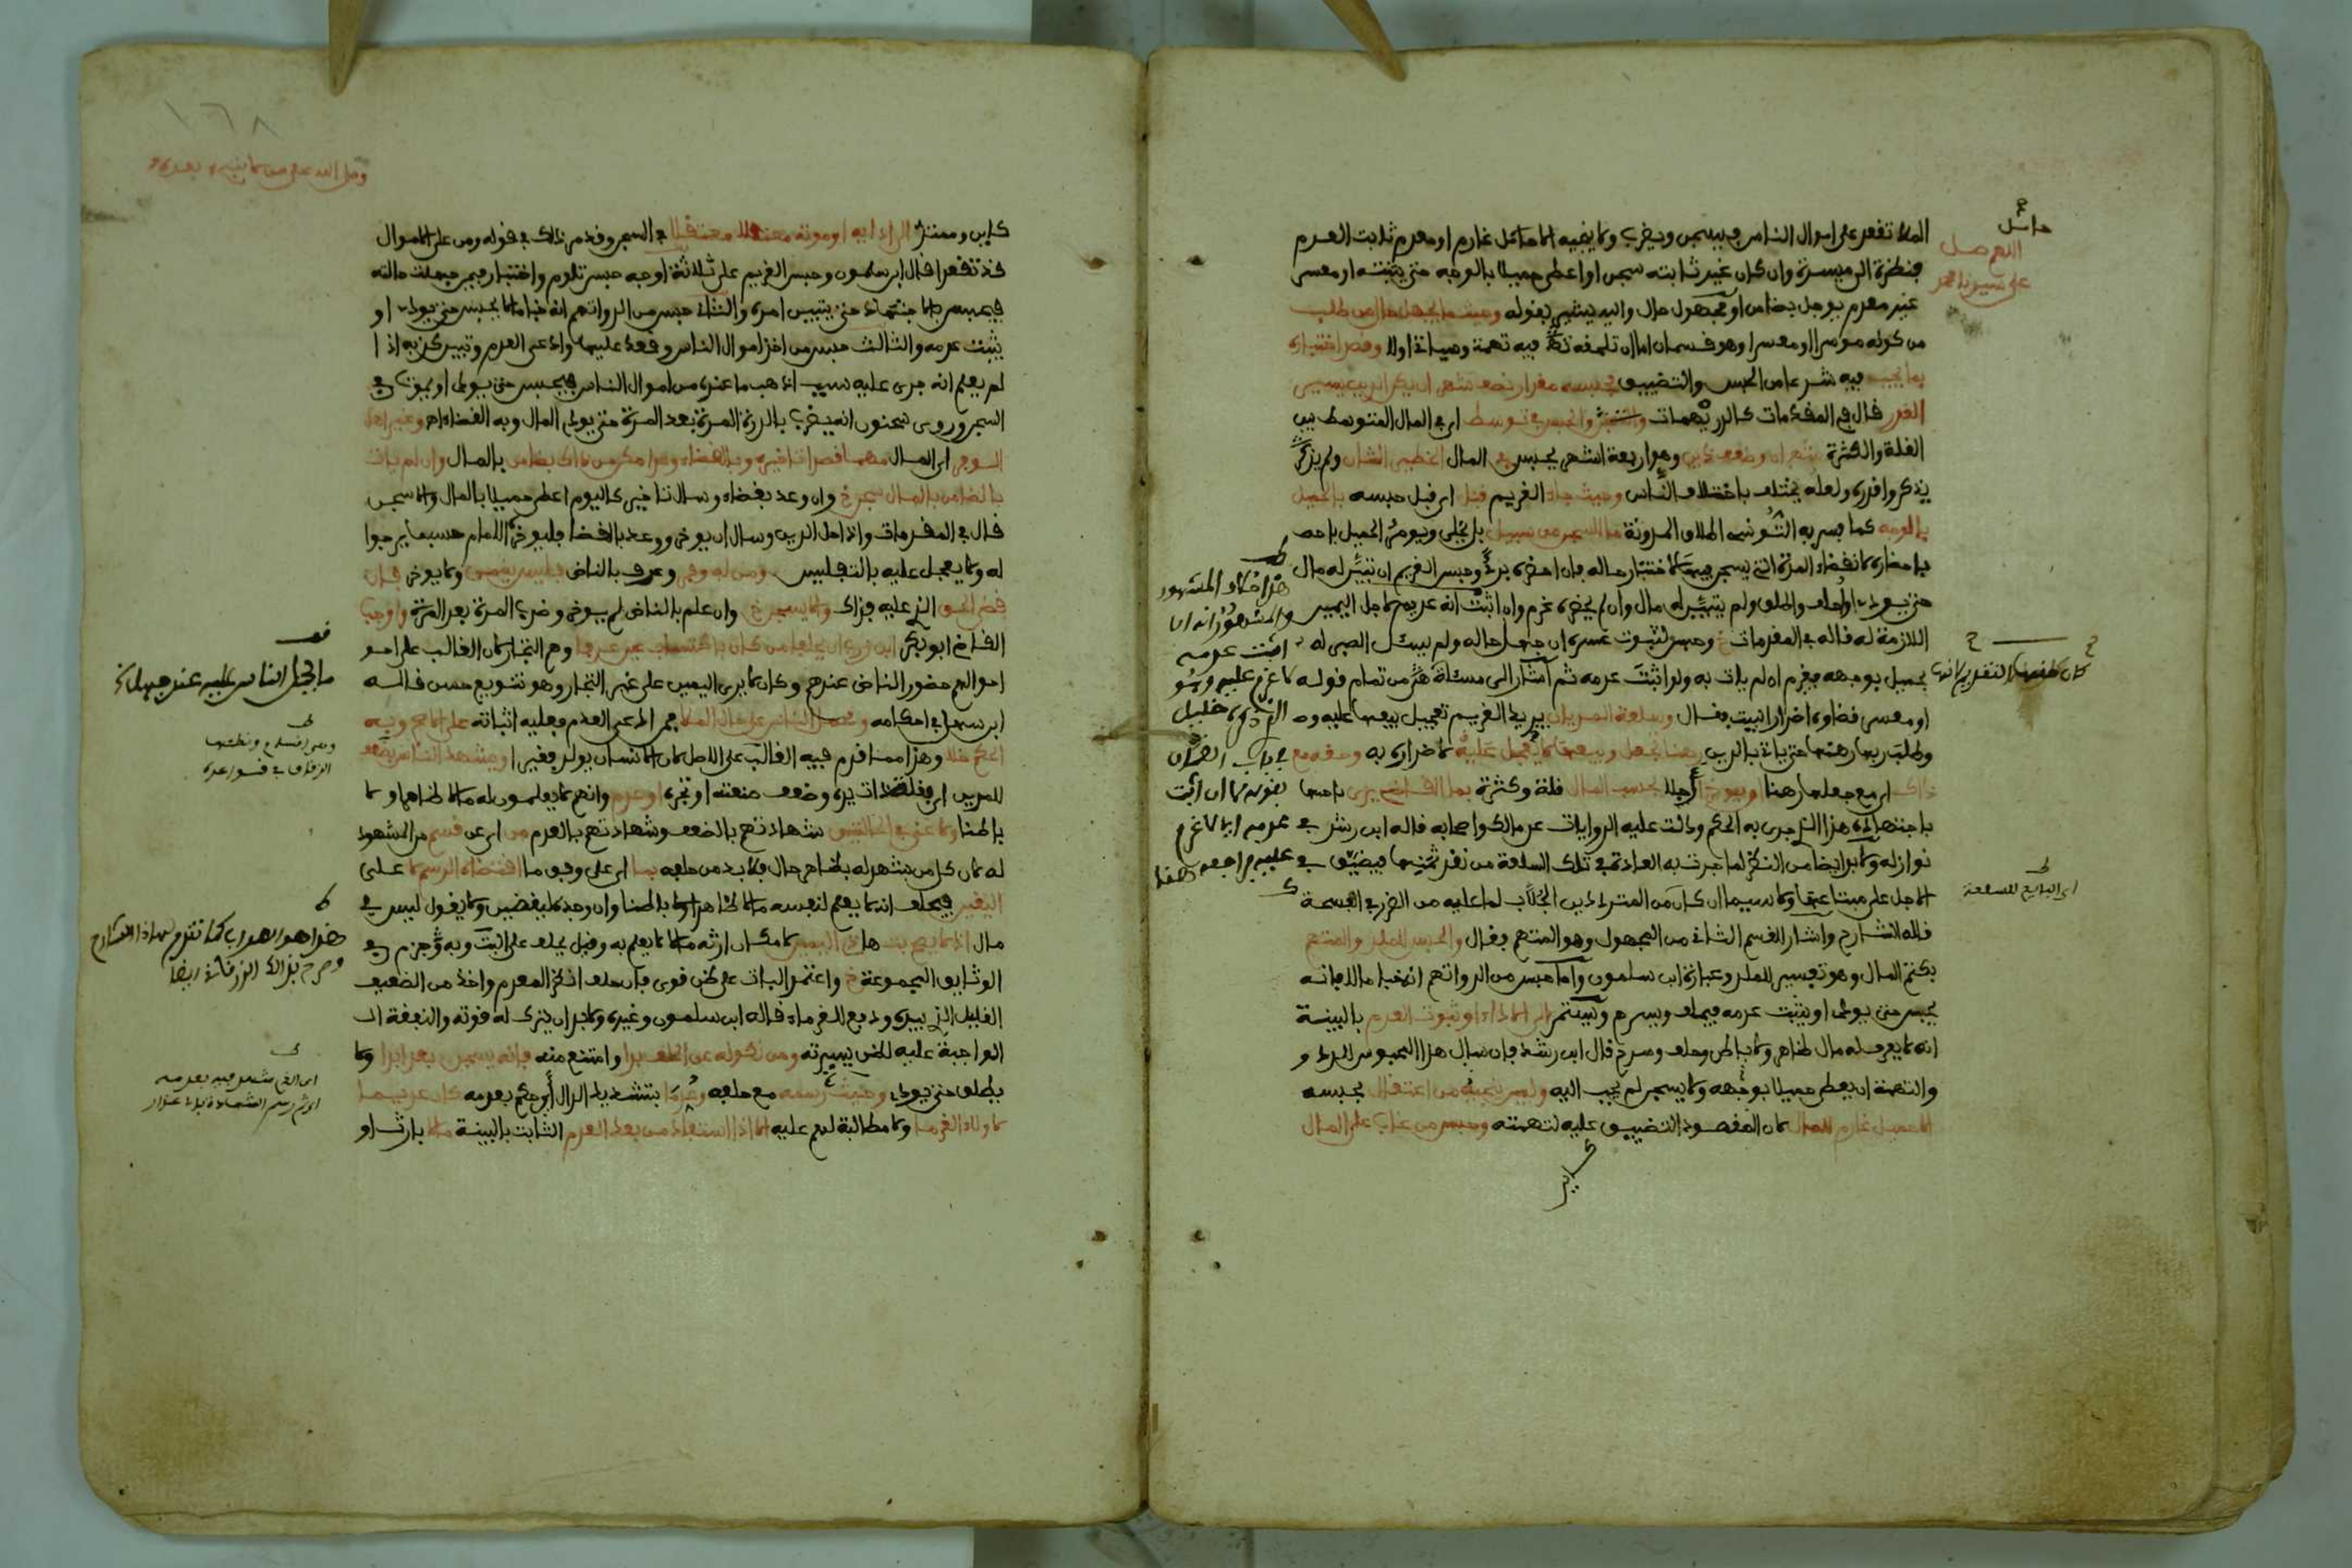 الملا تقعد على اموال الناس فيسجن ويضرب ولا ينجيه الا حامل غارم او معدم ثابت العدم
فنظرة الى ميسرة وان كان غير ثابته سجن او اعطى حميلا بالوجه حتى يثبته او معسر
غير معدم يوجل بضامن او مجهول حال واليه يشير بقوله وحيثما يجهل حال من طلب
من كونه موسرا او معسرا وهو قسمان اما ان تلحقه فيه تهمة وسياتي اولا وقصد اختباره
بما يجب فيه شرعا من الحبس والتضييق فحبسه مقدار نصف شهر ان يكن الدين يسير
القدر قال في المقدمات كالدريهمات والحبس في توسط اي في المال المتوسط بين
القلة والكثرة شهران وضعف ذين وهو اربعة اشهر يحبس في المال الخطير الشان ولم يذكر
يذكروا قدره ولعله يختلف باختلاف الناس وحيث جاء الغريم قبل اي قبل حبسه بالحميل
بالوجه كما فسر به التونسي اطلاق المدونة ما للسجن من سبيل بل يخلى ويومر الحميل باحضاره
باحضاره لانقضاء المدة التي يسجن فيها لاختبار حاله فان احضره برئ وحبس الغريم ان تبين له مال
حتى يودي او احلف واطلق ولم يتبين له مال وان لم يحضره غرم وان اثبت انه عديم لاجل اليمين
اللازمة له قاله في المقدمات خ وحبس لثبوت عسره ان جهل حاله ولم يسئل الصبر له
بحميل بوجهه فغرم ان لم يات به ولو اثبت عدمه ثم اشار الى مسئلة هي من تمام قوله
او معسر قضاوه اضرارا يبيت فقال وسلعة المديان يريد الغريم تعجيل بيعها عليه و
وطلب ربها رهنها حتى ياتي بالدين رهنا تجعل وبيعها لا يعجل عليه لاضراره به وحقه مع
ذاك اي مع جعلها رهنا او يوخر اجلا بحسب المال قلة وكثرة بما القاضي يرى باجتهاده
باجتهاده هذا الذي جرى به الحكم ودلت عليه الروايات عن مالك واصحابه قاله ابن رشد في
نوازله ولا بد ايضا من النظر لما جرت به العادة في تلك السلعة من نقد ثمنها فيضيق في
الاجل على مبتاعها ولا سيما ان كان من المترددين الجلاب لما عليه من الضرر في الفسحة
قاله الشارح واشار للقسم الثاني من المجهول وهو المتهم فقال والحبس للملد والمتهم
بكتم المال وهو تفسير للملد وعبارة ابن سلمون واما حبس من الد واتهم انه خبا مالا فانه
يحبس حتى يودي او يثبت عدمه فيحلف ويسرح ويستمر الى الاداء او ثبوت العدم بالبينة
انه لا يعرف له مال ظاهر ولا باطن وحلف وسرح قال ابن رشد فان سال هذا المحبوس للدد و
والتهمة ان يعطى حميلا بوجهه ولا يسجن لم يجب اليه وليس ينجيه من اعتقال بحبسه
الا حميل غارم للمال لان المقصود التضييق عليه لتهمته وحبس من غاب على المال
الى
حائل
اللهم صل
على سيدنا محمد
هذا خلاف المشهور
والمشهور انه ان
اثبت عدمه
لا غرم عليه
خليل
في باب الضمان
بقوله لا ان اثبت
عدمه
اي البايع للسلعة
١٦٨
وصلى الله على من لا نبي بعده
الى اداءيه او موته معتقلا في السجن وقد مر ذلك في قوله ومن على الاموال
قد تقعدا قال ابن سلمون وحبس الغريم على ثلاثة اوجه حبس تلوم واختبار فيمن جهلت حالته
فيحبس بالاجتهاد حتى يتبين امره والثاني حبس من الد واتهم انه خبا مالا يحبس حتى يودي او
يثبت عدمه والثالث حبس من اخذ اموال الناس وقعد عليها وادعى العدم وتبين كذبه اذا
لم يعلم انه جرى عليه سبب اذهب ما عنده من اموال الناس فيحبس حتى يودي او يموت في
السجن وروى سحنون انه يضرب بالدرة المرة بعد المرة حتى يودي المال وبه القضاء اه وغير اهل
الوجد اي المال مهما قصدا تاخيره وبالقضاء وعدا مكن من ذاك بضامن بالمال وان لم يات
بالضامن بالمال سجن خ وان وعد بقضاء وسال تاخير كاليوم اعطى حميلا بالمال والا سجن
قال في المقدمات واذا حل الدين وسال ان يوخر ووعد بالقضا فليوخره الامام حسبما يرجوا
له ولا يعجل عليه بالتفليس ومن له وفر وعرف بالناض فليس يعذر ولا يوخر فان
قضى الحق الذي عليه فذاك والا يسجن خ وان علم بالناض لم يوخر وضرب المرة بعد المرة واوجب
القاضي ابو بكر ابن زرب ان يحلف من كان باكتساب عين عرفا وهم التجار لان الغالب على احوالهم
احوالهم حضور الناض عندهم وكان لا يرى اليمين على غير التجار وهو تنويع حسن قاله
ابن سهل في احكامه ومحمل الناس على حال الملا فمن ادعى العدم فعليه اثباته على الاصح وبه
الحكم خلا وهذا مما قدم فيه الغالب على الاصل لان الانسان يولد فقيرا ويشهد الناس بضعف
للمدين اي بقلة ذات يده وضعف صنعته او تجره او عدم وانهم لا يعلمون له مالا ظاهرا ولا
باطنا ولا غنى في الحالتين شهادتهم بالضعف وشهادتهم بالعدم من اي عن قسم من المشهود
له لان كل من شهد له بظاهر حال فلا بد من حلفه بما اي على وفق ما اقتضاه الرسم لا على
اليقين فيحلف انه لا يعلم لنفسه مالا ظاهرا ولا باطنا وان وجد ليقضين ولا يقول ليس لي
مال اذ لا يصح بت هاذي اليمين لامكان ارثه مالا لا يعلم به وقيل يحلف على البت وبه جزم في
الوثائق المجموعة خ واعتمد البات على ظن قوي فان حلف انظر المعدم واخذ من الضعيف
القليل الذي بيده ودفع للغرماء قاله ابن سلمون وغيره ولا بد ان يترك له قوته والنفقة ال
الواجبة عليه لظن يسرته ومن نكوله عن الحلف بدا وامتنع منه فانه يسجن بعد ابدا ولا
يطلق حتى يودي وحيث رسمه مع حلفه وعدما بتشديد الدال اي حكم بعدمه كان عديما
لاولاء الغرما ولا مطالبة لهم عليه الا اذا استفاد من بعد العدم الثابت بالبينة مالا بارث او
ما يحمل الناس عليه عند جهل
هذا هو الصواب كما تقدم
وصرح بذلك الزرقاني ايضا